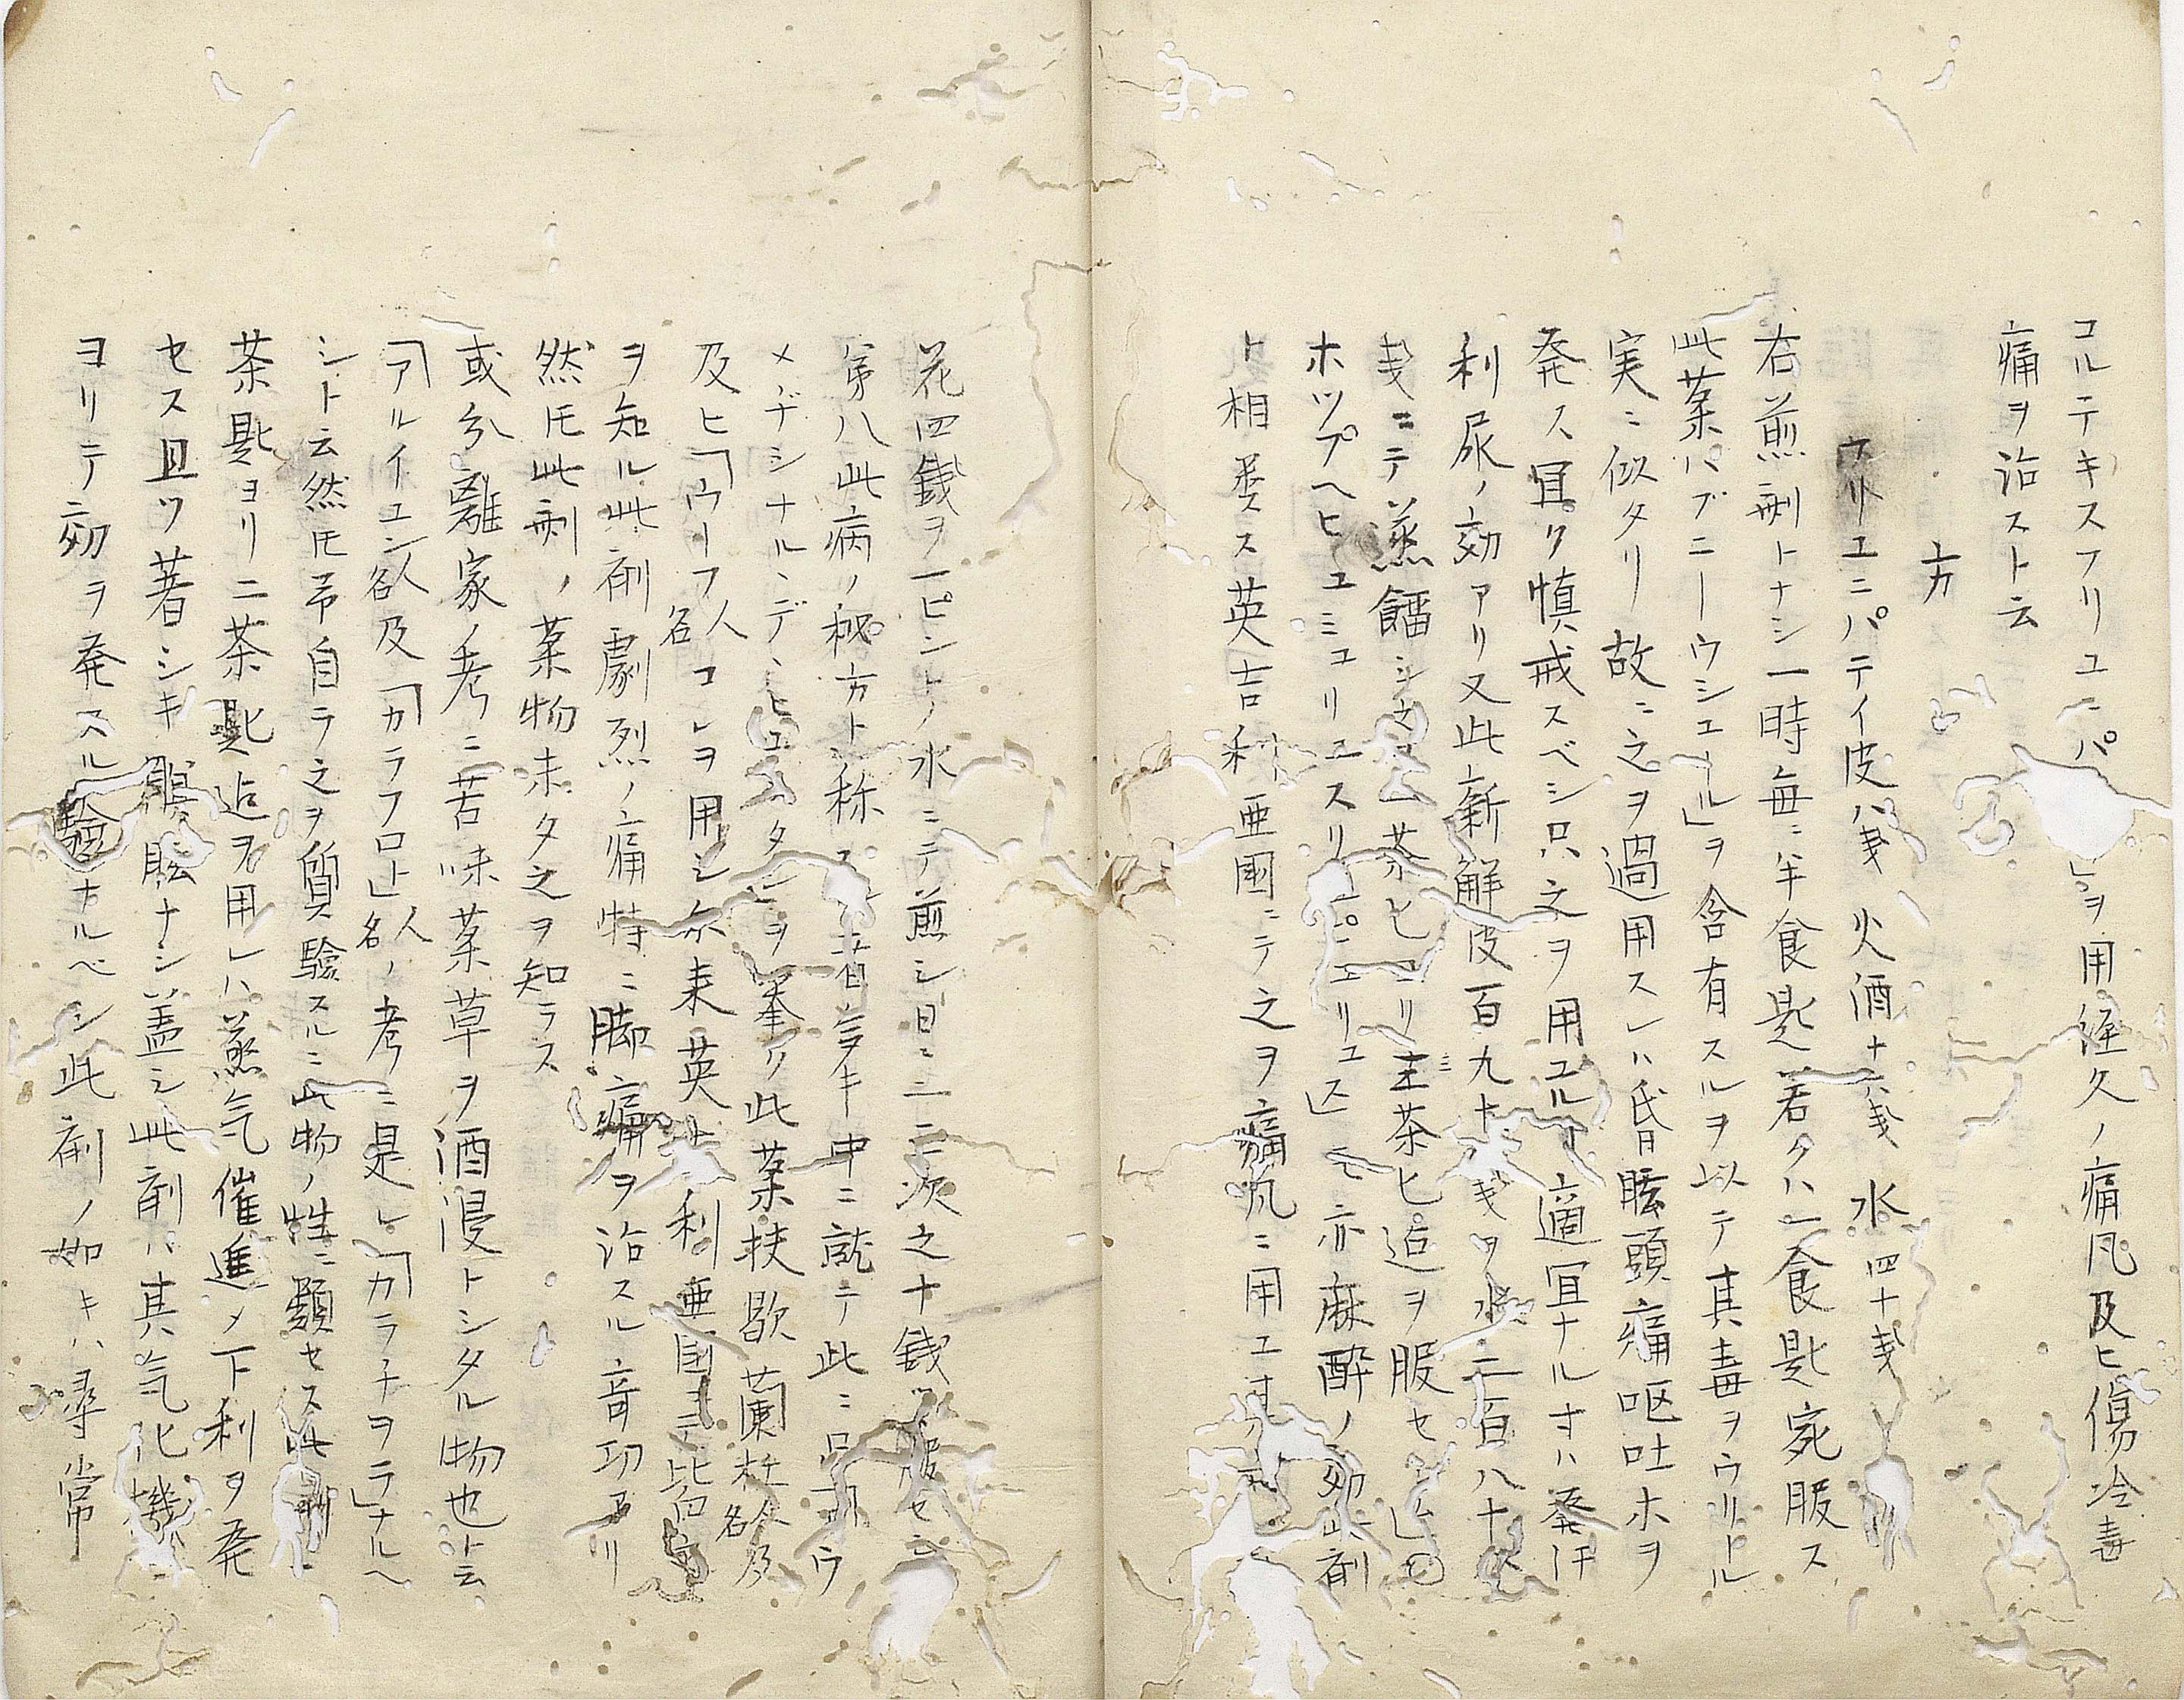 コルテキスフリユニパ」ヲ用経久ノ痛風及ヒ傷冷毒
痛ヲ治スト云
方
フリユニパティ皮八戔 火酒十六戔 水四十戔
右煎剤トナシ一時毎ニ半食匙若クハ一食匙宛服ス
此薬ハブニーウシュール」ヲ含有スルヲ以テ其毒ヲウリトル
実ニ似タリ故ニ之ヲ過用スレハ昏眩頭痛呕吐ホヲ
発ス冝ク慎戒スベシ只之ヲ用ユル適冝ナルオハ発汗
利尿ノ効アリ又此新鮮皮百九十戔ヲ水二百八十
戔ニテ蒸餾シ茶匕ヨリ茶匕迠ヲ服セ
ホツプヘヒユミユリユスリユピユリユ」モ亦麻酔ノ効此剤
ト相類ス英吉利亜国ニテ之ヲ痛風ニ用ユ
花四銭ヲ一ピントノ水ニテ煎シ日ニ二三次之十銭ツ服セシ
第八此病ノ秘方ト称ス者多キ中ニ就テ此ニ品ヲウ
メヂシナルデヒユタンヲ挙ク此薬扶歇蘭杜人名及
及ヒ「ウーフ人名コレヲ用シ尓来英吉利亜国ニテ皆
ヲ知ル此剤劇烈ノ痛特ニ脚痛ヲ治スル竒功アリ
然圧此剤ノ薬物未タ之ヲ知ラス
或分離家ノ考ニ苦味薬草ヲ酒浸トシタル物也ト云
「アルイユン人名及「カラフロト」人名ノ考ニ是レ「カラチヲラ」ナルヘ
シト云然圧予自ラ之ヲ質験スルニ此物ノ性ニ類セス此剤ニ
茶匙ヨリ二茶匙迠ヲ用レハ蒸気催進メ下利ヲ発
セス且ツ著シキ眩ナシ盖シ此剤ハ其気化機
ヨリテ効ヲ発スル験ナルベシ此剤ノ如キハ尋常